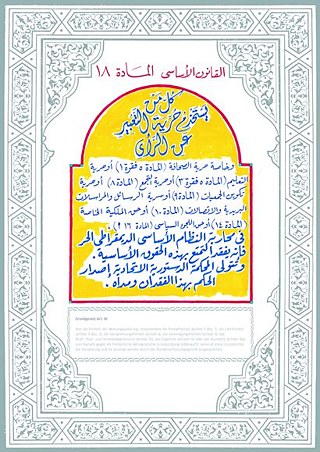 القانون الأساسي المادة ١٨
كل من
يستخدم حرية التعبير
عن الرأي
وبخاصة حرية الصحافة (المادة ٥ فقرة ١) أو حرية
التعليم (المادة ٥ فقرة ٣) أو حرية التجمع (المادة ٨) أو حرية
تكوين الجمعيات (المادة ٩) أو سرية الرسائل والمراسلات
البريدية والاتصالات (المادة ١٠) أو حق الملكية الخاصة
(المادة ١٤) أو حق اللجوء السياسي (المادة ١٦ ٢)،
في محاربة النظام الأساسي الديمقراطي الحر
فإنه يفقد التمتع بهذه الحقوق الأساسية.
وتتولى المحكمة الدستورية الاتحادية إصدار
الحكم بهذا الفقدان ومداه.
Grundgesetz Art. 18